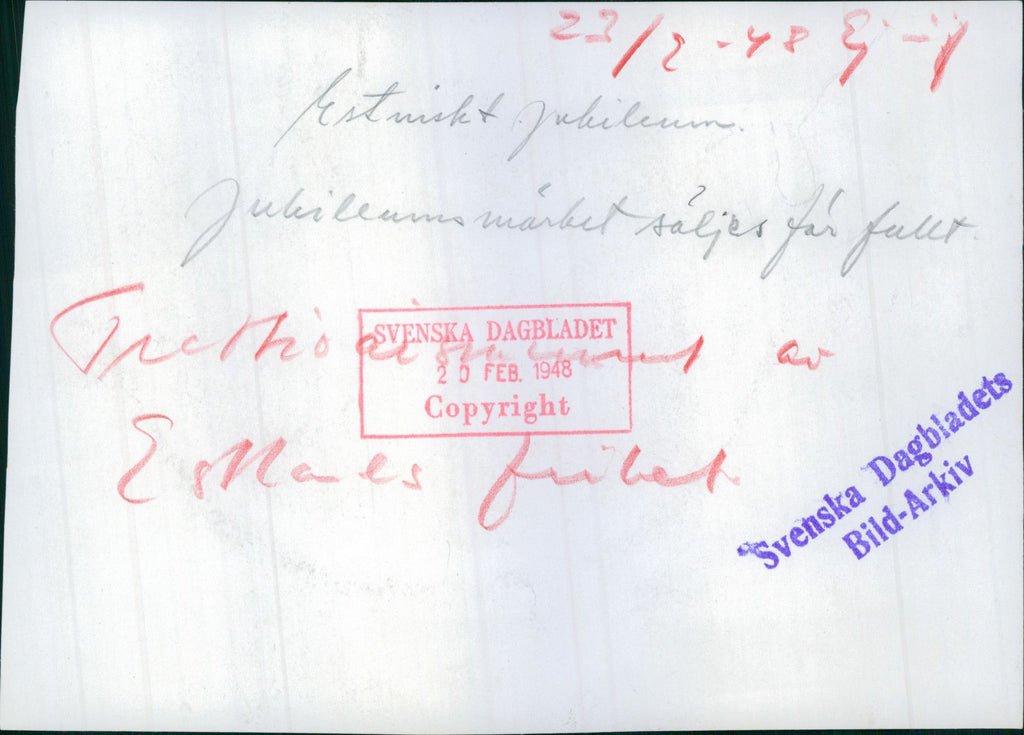 23/2 -48 Ej
Estniskt jubileum.
Jubileumsmärket säljes för fullt.
Trettioårsminnet av
SVENSKA DAGBLADET
20 FEB. 1948
Copyright
Estlands frihet.
Svenska Dagbladets
Bild-Arkiv